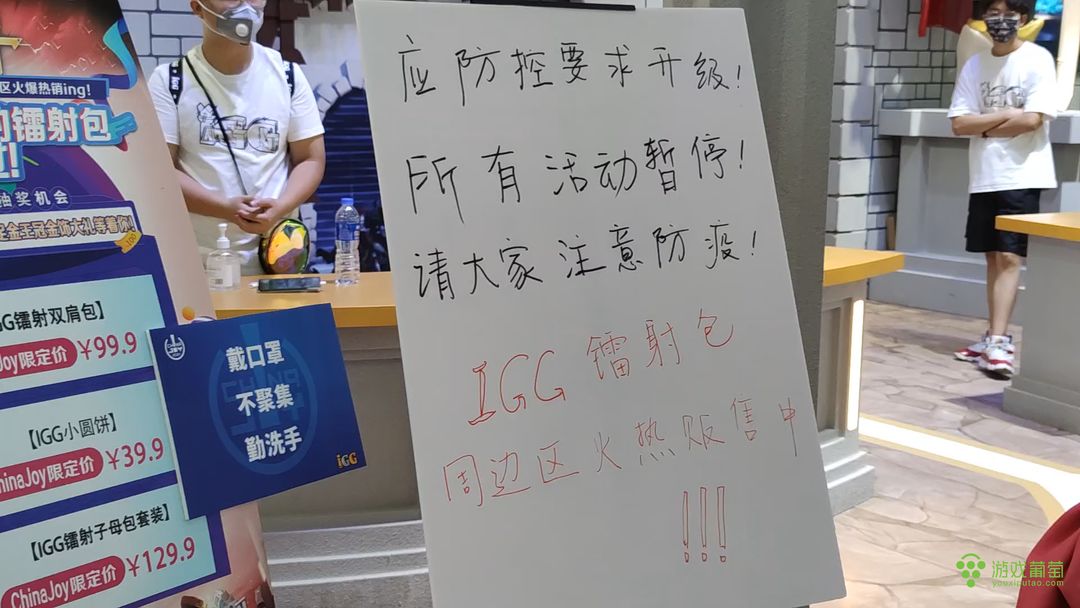 区火爆热销ing!
镭射包
抽奖机会
金王冠金饰大礼等着你!
GG镭射双肩包】
Joy限定价 ¥99.9
【IGG小圆饼】
ChinaJoy限定价 ¥39.9
【IGG镭射子母包套装】
ChinaJoy限定价 ¥129.9
戴口罩
不聚集
勤洗手
IGG
应防控要求升级!
所有活动暂停!
请大家注意防疫!
IGG镭射包
周边区火热贩售中
!!!
游戏葡萄
youxiputao.com